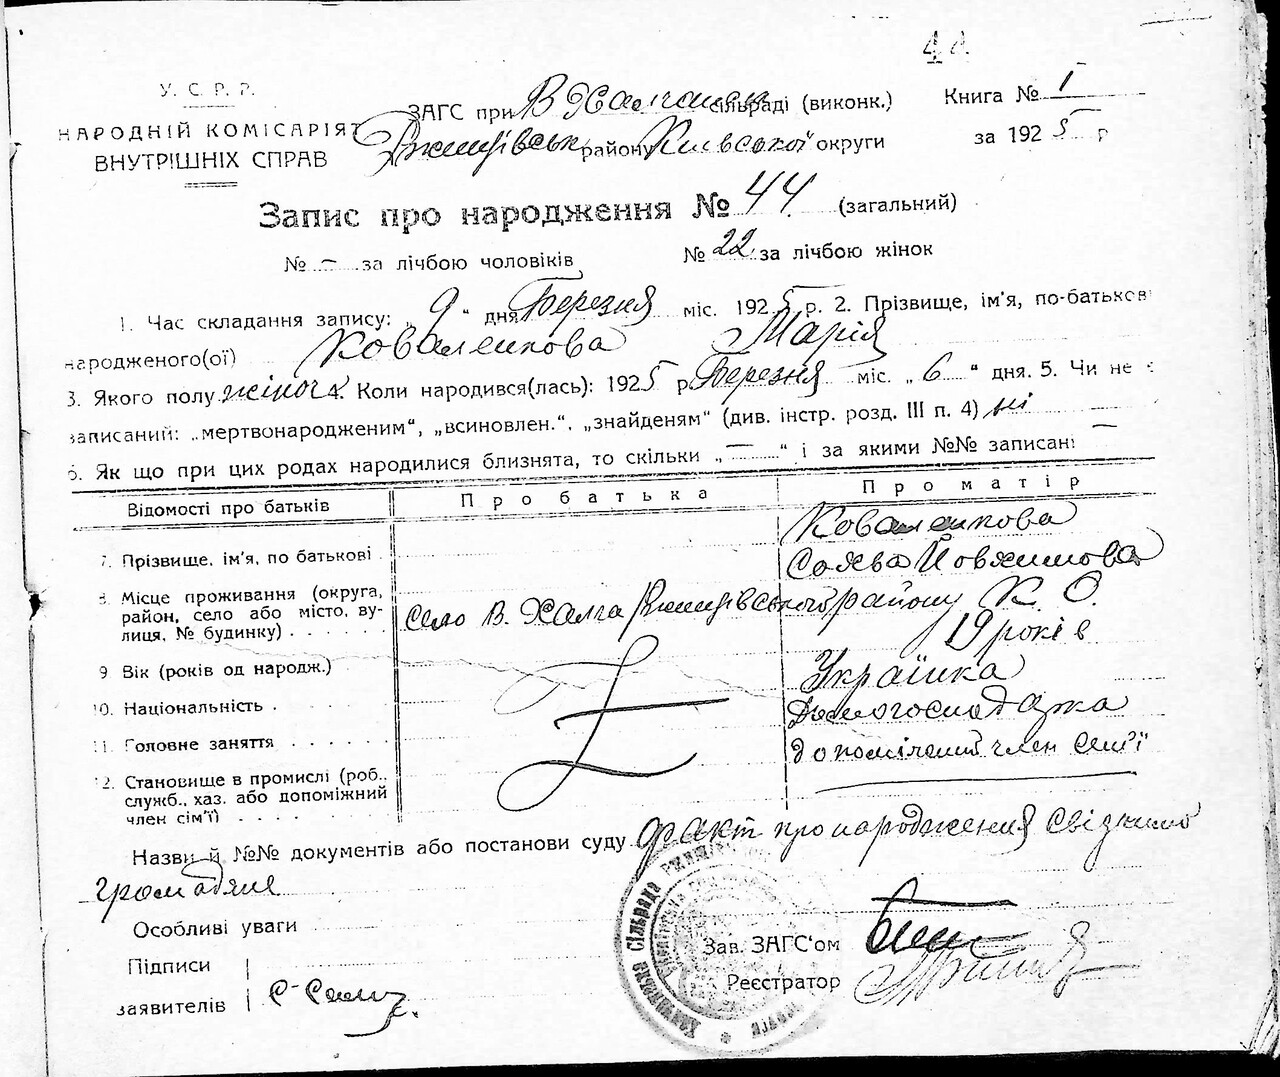 У. С. Р. Р.
НАРОДНІЙ КОМІСАРІЯТ
ВНУТРІШНІХ СПРАВ
ЗАГС при В Халчанськ сільраді (виконк.)
Ржищівськ району Київської округи
Книга № 1
за 1925 р
Запис про народження № 44. (загальний)
№ – за лічбою чоловіків
№ 22 за лічбою жінок
1. Час складання запису: „ 9 “ дня Березня міс. 1925 р. 2. Прізвище, ім'я, по-батькові
народженого(ої) Коваленкова Марія
3. Якого полу жіноч 4. Коли народився(лась): 1925 р. Березня міс. „ 6 “ дня. 5. Чи не є
записаний: „мертвонародженим“, „всиновлен.“, „знайденям“ (див. інстр. розд. III п. 4) ні
6. Як що при цих родах народилися близнята, то скільки „ — “ і за якими №№ записані —
Відомості про батьків
Про батька
Про матір
7. Прізвище, ім'я, по батькові
Коваленкова
Йовхимова
8. Місце проживання (округа,
район, село або місто, ву-
лиця, № будинку)
село В. Халча Ржищівський району К. О.
9 Вік (років од народж.)
19 років
10. Національність
Українка
11. Головне заняття
Домогосподажа
12. Становище в промислі (роб.,
служб., хаз. або допоміжний
член сім'ї)
допоміжний член сім'ї
Назви й №№ документів або постанови суду факт про народження свідкимо
громадяне
Особливі уваги
Підписи
заявителів
Зав. ЗАГС'ом
Реєстратор